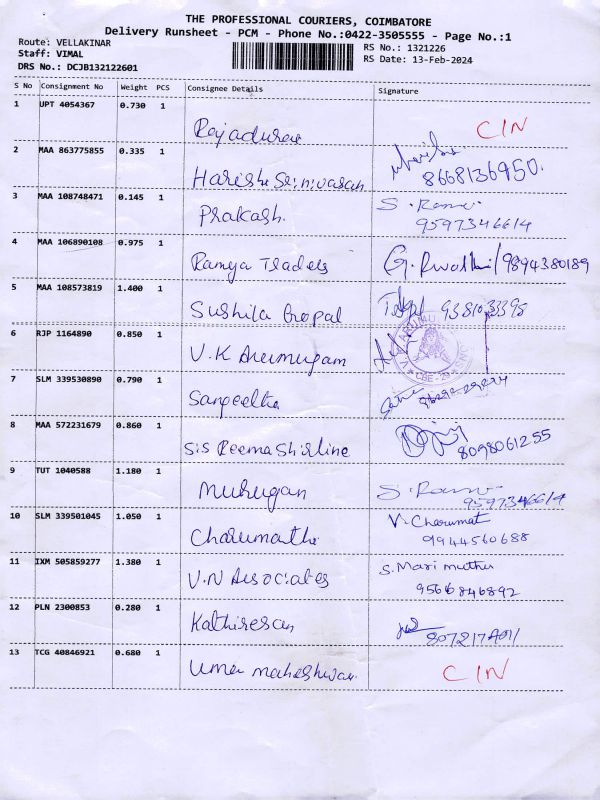 THE PROFESSIONAL COURIERS, COIMBATORE
Delivery Runsheet - PCM - Phone No.:0422-3505555 - Page No.:1
Route: VELLAKINAR
Staff: VIMAL
DRS No.: DCJB132122601
RS No.: 1321226
RS Date: 13-Feb-2024
S No Consignment No Weight PCS Consignee Details Signature
1 UPT 4054367 0.730 1 Rajadurai CIN
2 MAA 863775855 0.335 1 Harish Srinivasan 8668136950.
3 MAA 108748471 0.145 1 Prakash. S. Ramu 9597346614
4 MAA 106890108 0.975 1 Ramya Traders G. / 9894380189
5 MAA 108573819 1.400 1 Sushila Gopal
6 RJP 1164890 0.850 1 V.K Arumugam CBE - 29
7 SLM 339530890 0.790 1 Sangeetha
8 MAA 572231679 0.860 1 Sis Reema Shirline 8098061255
9 TUT 1040588 1.180 1 Murugan S. Ramu 9597346614
10 SLM 339501045 1.050 1 Charumathi V. Charumat 9944560688
11 IXM 505859277 1.380 1 V.N Associates S. Mari muthu 9566846892
12 PLN 2300853 0.280 1 Kathiresan
13 TCG 40846921 0.680 1 Uma maheshwari CIN